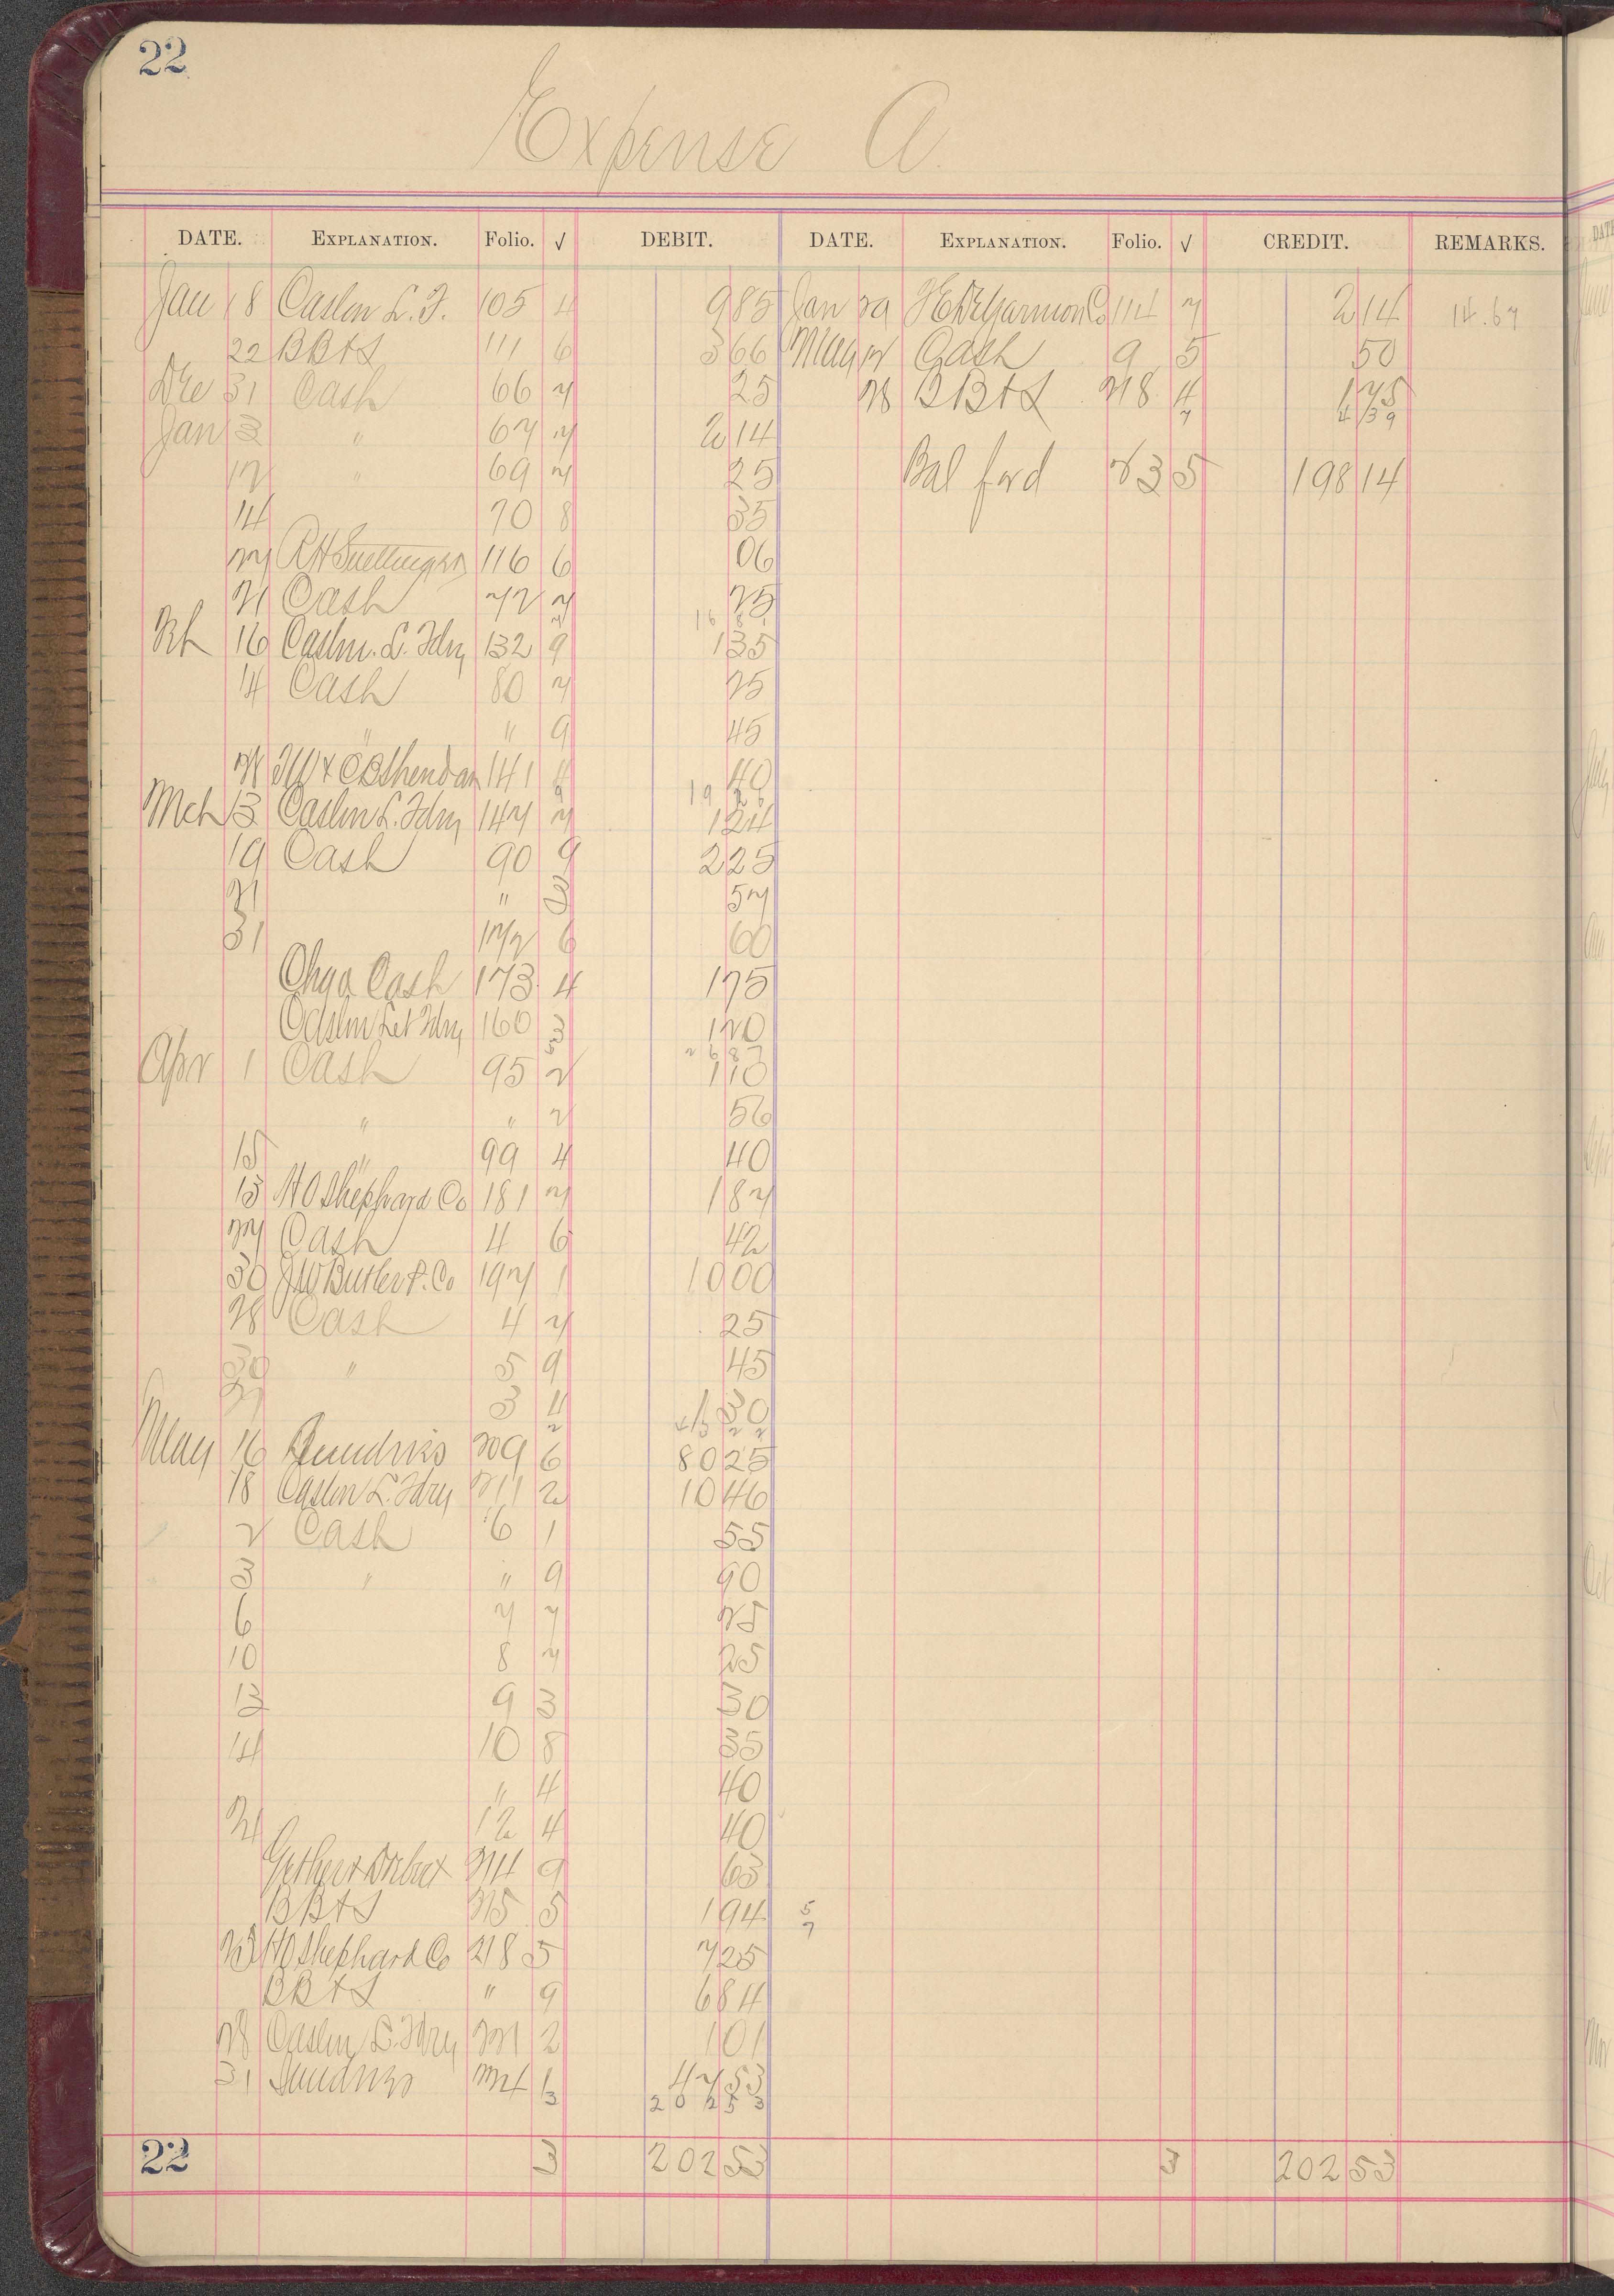 22
Expense A
DATE. EXPLANATION. Folio. √ DEBIT. DATE. EXPLANATION. Folio. √ CREDIT. REMARKS.
Jan 18 Caslon L. F. 105 4 9 85 Jan 29 114 7 2 14 14.67
22 BB&S 111 6 3 66 May 12 Cash 9 5 50
Dec 31 Cash 66 7 25 28 BB&S 218 4 1 75
7 4 39
Jan 3 " 67 7 2 14
12 " 69 7 25 Bal ford 23 5 198 14
14 70 8 35
27 116 6 06
21 Cash 72 7 25
16 81
16 Caslon. L. Fdry 132 9 1 35
14 Cash 80 7 25
" " 9 45
141 4 40
19 26
Mch 3 Caslon L. Fdry 147 7 1 24
19 Cash 90 9 2 25
21 " 3 57
31 172 6 60
Chgo Cash 173 4 1 75
Caslon Let Fdry 160 3 1 20
5 26 87
Apr 1 Cash 95 2 1 10
" " 2 56
15 " 99 4 40
13 H O Shephard Co 181 7 1 87
27 Cash 4 6 42
30 J W Butler P. Co 197 1 10 00
28 Cash 4 7 25
30 " 5 9 45
21 3 4 30
2 43 22
May 16 Sundries 209 6 80 25
18 Caslon L. Fdry 211 2 10 46
2 Cash 6 1 55
3 " " 9 90
6 7 7 25
10 8 7 25
13 9 3 30
14 10 8 35
" 4 40
21 12 4 40
214 9 63
BB&S 215 5 1 94 5 7
23 H O Shephard Co 218 5 7 25
BB&S " 9 6 84
28 Caslon L. Fdry 221 2 1 01
31 Sundries 224 1 47 53
3 202 53
22 3 202 53 3 202 53